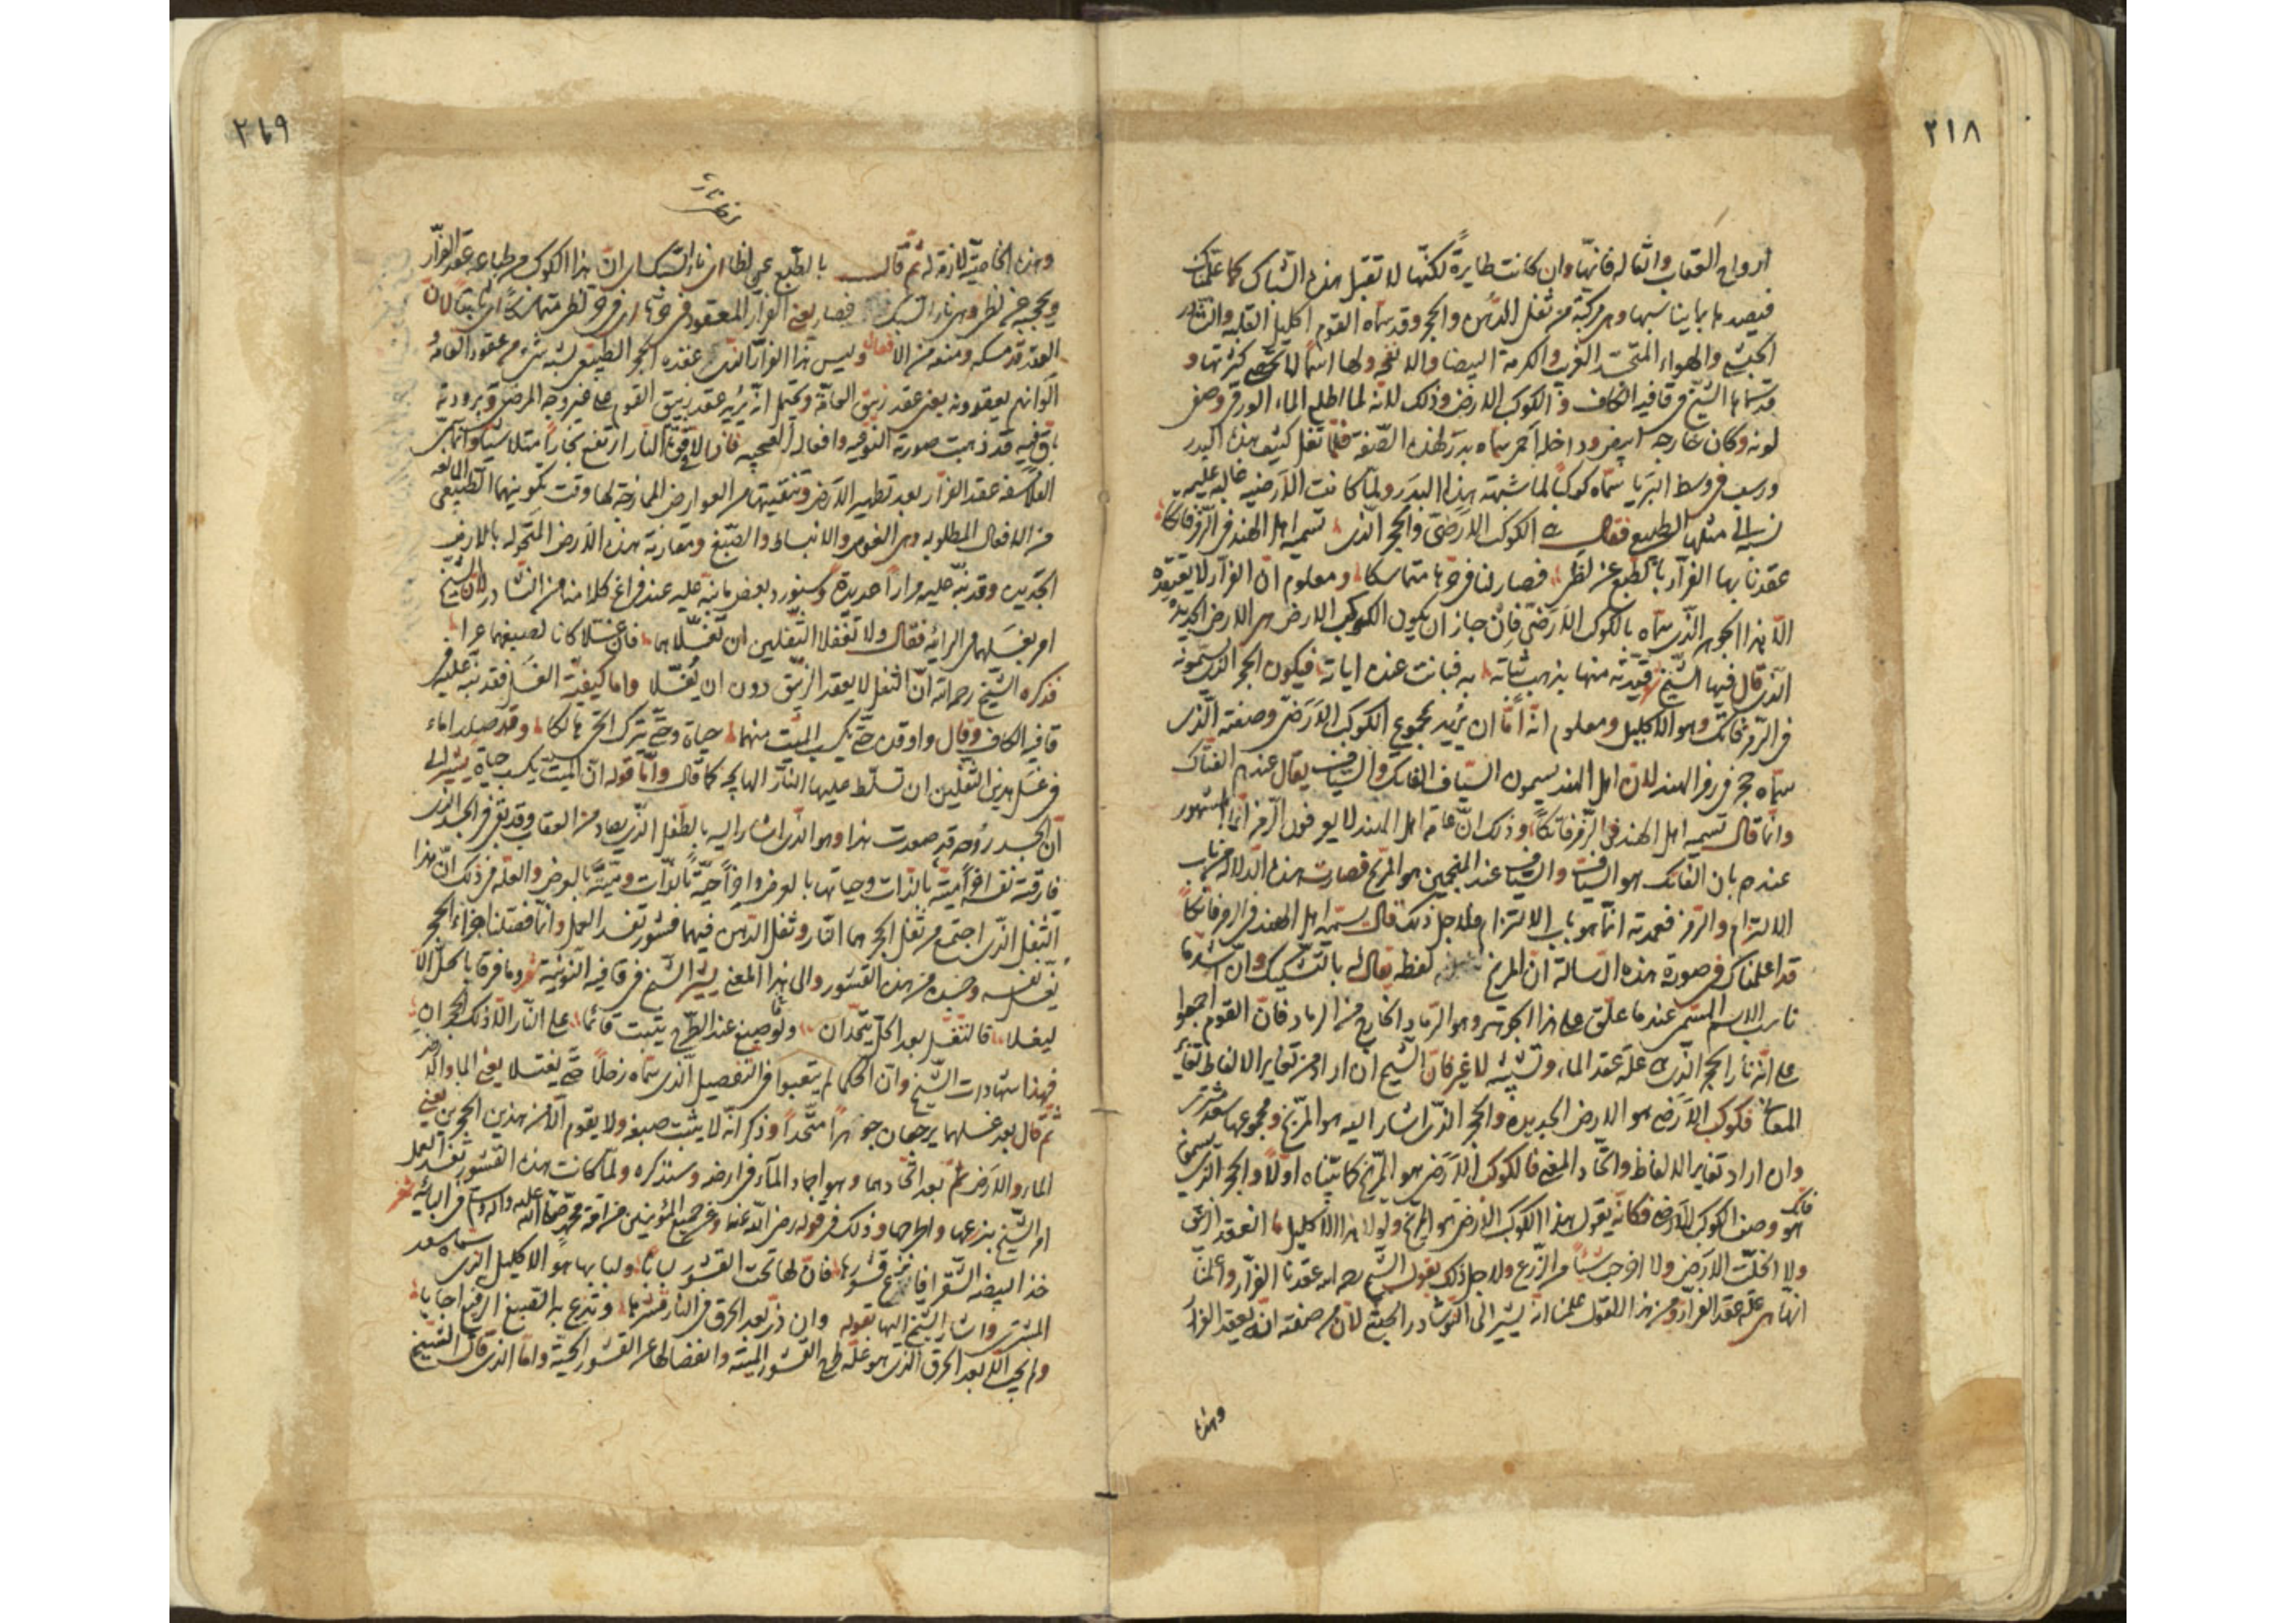 ٢١٨
ارواح العقاب وامثاله فانها وان كانت طايرة لكنها لا تقبل هذه الشباك كما علمناك
فيصيدها بما يناسبها وهي مركبة من ثفل الدهن والحجر وقد سماه القوم اكليل الغلبه والنشادر
الجبشي والهواء المتجسد الغربي والكرمة البيضا والانفحه ولها اسما لا تحصى كثرتها و
قد سماها الشيخ في قافية الكاف الكوكب الارضي وذلك لانه لما اظلم الماء الورقي وصفى
لونه وكان خارجه ابيض وداخله احمر سماه بدر لهذه الصفة فلما ثفل كثيف هذا البدر
ورسب في وسط البريا سماه كوكبا لما شبهته بهذا البدر ولما كانت الارضيه غالبه عليه
نسبه الى مثلها بالطبع فقال الكوكب الارضي والحجر الذي تسميه اهل الهند في الرمز فاتكا
عقدنا بها الفرار بالطبع عن لظى فصار لنا في حرها متماسكا ومعلوم ان الفرار لا يعقده
الا هذا الجوهر الذي سماه بالكوكب الارضي فان جاز ان يكون الكوكب الارضي هي الارض الجديدة
الذي قال فيها الشيخ قيدته منها بذهب ثباته به فبانت عنده اياته فيكون الحجر الذي يسمونه
في الرمز فاتك وهو الاكليل ومعلوم انه اما ان يريد بمجموع الكوكب الارضي وصفته الذي
سماه حجر في رمز الهند لان اهل الهند يسمون السياف الفاتك والسياف يقال عندهم الفتاك
وانما قال تسميه اهل الهند في الرمز فاتكا وذلك ان عامة اهل الهند لا يعرفون الرمز انما المشهور
عندهم بان الفاتك هو السياف والسياف عند المنجمين هو المريخ فصارت هذه الدلالة من باب
الالتزام والرمز فعمدته انما هو باب الالتزام ولاجل ذلك قال تسميه اهل الهند في الرمز فاتكا
قد اعلمناك في صورة هذه الرسالة ان المريخ لفظه يقال له بالتشكيك وان اشد ما
ناسب الاسم المسمى عندما علق على هذا الجوهر وهو الرماد الخارج من الرماد فان القوم اجمعوا
على انه نار الحجر الذي علة عقد الماء وتشبيه لا غير فان الشيخ ان اراد من تغاير الالفاظ تغاير
المعاني فكوكب الارضي هو الارض الجديده والحجر الذي اشار اليه هو المريخ ومجموعها سعد مشتري
وان اراد تغاير الالفاظ واتحاد المعنى فالكوكب الارضي هو المريخ كما بيناه اولا والحجر الذي يسمى
فاتك هو وصف الكوكب الارضي فكانه يقول هذا الكوكب الارضي هو المريخ ولولا هذا الاكليل ما انعقد الزيبق
ولا انحلت الارض ولا اخرجت شيئا من الزرع ولاجل ذلك يقول الشيخ رحمه الله عقدنا الفرار واعلمنا
انها هي علة عقد الفرار ومن هذا القول علمنا انه يشير الى النوشادر الجبشي لان من صفته انه يعقد الفرار
وهذه
٢١٩
وهذه الخاصية لازمة له ثم قال بالطبع عن لظى اي نار السبك اي ان هذا الكوكب من طباعه عقد الفرار
ويحجبه عن لظى وهي نار السبك فصار يعني الفرار المعقود في حرها اي في حر لظى متماسكا اي ثابتا لان
العقد قد مسكه ومنعه من الانفعال وليس هذا الفرار الذي عقده الحجر الطبيعي يشبه شيء من عقود العامة
الوانهم يعقدونه يعني عقد زيبق العامة ويحتمل انه يريد عقد زيبق القوم على غير وجه المرضي وبرودته
باقيه قد ذهبت صورته النوعيه وافعاله العجيبه فاذا لاقى النار ارتفع بخارا متلاشيا وانما
الفلاسفه عقد الفرار بعد تطهير الارض وتنقيتها من العوارض الممازجة لها وقت تكوينهما الطبيعي المانعه
من الافعال المطلوبه وهي الغوص والانبساط والصبغ ومقارنة هذه الارض المتحوله بالارض
الجديده وقد نبه عليه مرارا عديدة وسنورد بعض ما نبه عليه عند فراغ كلامنا من النشادر لان الشيخ
امر بغسلهما في الرائيه فقال ولا تغفلا الثفلين ان تغسلاهما فان غسلا كانا لصبغهما عرا
فذكره الشيخ رحمه الله ان الثفل لا يعقد الزيبق دون ان يغسلا واما كيفية الغسل فقد نبه عليه في
قافية الكاف وقال واوقد حتى يكسب الميت منهما حياة وحتى يترك الحي هالكا وقد صار الماء
في غسل هذين الثفلين ان تسلط عليها النار الهابجه كما قال وانما قوله ان الميت يكسب حياة يشير الى
ان الجسد روحه قد صعدت هذا وهو الذي اشار اليه بالطفل الذي يصاد من العقاب وقد بقى في الجسد الذي
فارقته نفسا ميتة بالذات وحياتها بالعرض واجزاء حية بالذات وميتة بالعرض والعلة في ذلك ان هذا
الثفل الذي اجتمع من ثفل الحجر هما النار وثفل الدهن فيهما قشور تفسد العمل وانما فصلنا اجزاء الحجر
نغسل نفسه وجسده من هذه القشور والى هذا المعنى يشير الشيخ في قافية النونية وما فرقا بالحل الا
ليغسلا فالتغسل بعد الحل يتحدان ولو صبغ عند الطرح يثبت قائما على النار الا ذلك الحجران
فهذا شهادات الشيخ وان الحكما لم يتعبوا في التفصيل الذي سماه زحلا حتى يغتسلا يعني الماء والارض
ثم قال بعد غسلهما يرجعان جوهرا متحدا وذكر انه لا يثبت صبغه ولا يقوم الا من هذين الحجرين يعني
الماء والارض ثم بعد اتحادهما وهو اجماد الماء في ارضه وسنذكره ولما كانت هذه القشور تفسد العمل
امر الشيخ بنزعها واطراحها وذلك في قوله رضي الله عنه وعن جميع المؤمنين من امة محمد صلى الله عليه واله وسلم في البائيه شعر
خذ البيضة الشقرا فانزع قشورها فان لها تحت القشور لبابا ولبابها هو الاكليل الذي سماه سعد
المشتري واشار الشيخ اليها بقوله وان ذر بعد الحرق في النار قشرها وتدرع به الصبغ الرفيع اجابا
ولم يجب الا بعد الحرق الذي هو علة طرح القشور الميته وانفصالها عن القشور الحية واما الذي قال الشيخ